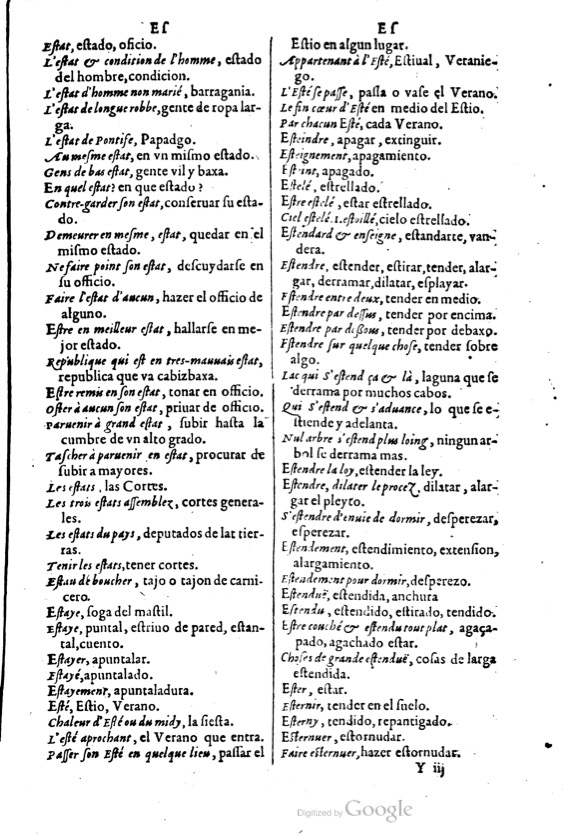 Eſ
Eſtat, eſtado, oficio.
L'eſtat & condition de l'homme, eſtado
del hombre, condicion.
L'eſtat d'homme non marié, barragania.
L'eſtat de longue robbe, gente de ropa lar-
ga.
L'eſtat de Pontife, Papadgo.
Au meſme eſtat, en vn miſmo eſtado.
Gens de bas eſtat, gente vil y baxa.
En quel eſtat? en que eſtado?
Contre-garder ſon eſtat, conſeruar ſu eſta-
do.
Demeurer en meſme, eſtat, quedar en el
miſmo eſtado.
Ne faire point ſon eſtat, deſcuydarſe en
ſu officio.
Faire l'eſtat d'aucun, hazer el officio de
alguno.
Eſtre en meilleur eſtat, hallarſe en me-
jor eſtado.
Republique qui eſt en tres-mauuais eſtat,
republica que va cabizbaxa.
Eſtre remis en ſon eſtat, tonar en officio.
Oſter à aucun ſon eſtat, priuar de officio.
Paruenir à grand eſtat, ſubir haſta la
cumbre de vn alto grado.
Taſcher à paruenir en eſtat, procurar de
ſubir a mayores.
Les eſtats, las Cortes.
Les trois eſtats aſſemblez, cortes genera-
les.
Les eſtats du pays, deputados de lat tier-
ras.
Tenir les eſtats, tener cortes.
Eſtau de boucher, tajo o tajon de carni-
cero.
Eſtaye, ſoga del maſtil.
Eſtaye, puntal, eſtriuo de pared, eſtan-
tal, cuento.
Eſtayer, apuntalar.
Eſtayé, apuntalado.
Eſtayement, apuntaladura.
Eſté, Eſtio, Verano.
Chaleur d'Eſté ou du midy, la ſieſta.
L'eſté aprochant, el Verano que entra.
Paſſer ſon Eſté en quelque lieu, paſſar el
Eſ
Eſtio en algun lugar.
Appartenant à l'Eſté, Eſtiual, Veranie-
go.
L'Eſté ſe paſſe, paſſa o vaſe el Verano.
Le fin cœur d'Eſté en medio del Eſtio.
Par chacun Eſté, cada Verano.
Eſteindre, apagar, extinguir.
Eſteignement, apagamiento.
Eſteint, apagado.
Eſtelé, eſtrellado.
Eſtre eſtelé, eſtar eſtrellado.
Ciel eſtelé. i. eſtoillé, cielo eſtrellado.
Eſtendard & enſeigne, eſtandarte, van-
dera.
Eſtendre, eſtender, eſtirar, tender, alar-
gar, derramar, dilatar, eſplayar.
Eſtendre entre deux, tender en medio.
Eſtendre par deſſus, tender por encima.
Eſtendre par deſſous, tender por debaxo.
Eſtendre ſur quelque choſe, tender ſobre
algo.
Lac qui s'eſtend ça & là, laguna que ſe
derrama por muchos cabos.
Qui s'eſtend & s'aduance, lo que ſe e-
ſtiende y adelanta.
Nul arbre s'eſtend plus loing, ningun ar-
bol ſe derrama mas.
Eſtendre la loy, eſtender la ley.
Eſtendre, dilater le procez, dilatar, alar-
gar el pleyto.
S'eſtendre d'enuie de dormir, deſperezar,
eſperezar.
Eſtendement, eſtendimiento, extenſion,
alargamiento.
Eſtendement pour dormir, deſperezo.
Eſtenduë, eſtendida, anchura
Eſtendu, eſtendido, eſtirado, tendido.
Eſtre couché & eſtendu tout plat, agaça-
pado, agachado eſtar.
Choſes de grande eſtenduë, coſas de larga
eſtendida.
Eſter, eſtar.
Eſternir, tender en el ſuelo.
Eſterny, tendido, repantigado.
Eſternuer, eſtornudar.
Faire eſternuer, hazer eſtornudar.
Y iij
Digitized by Google